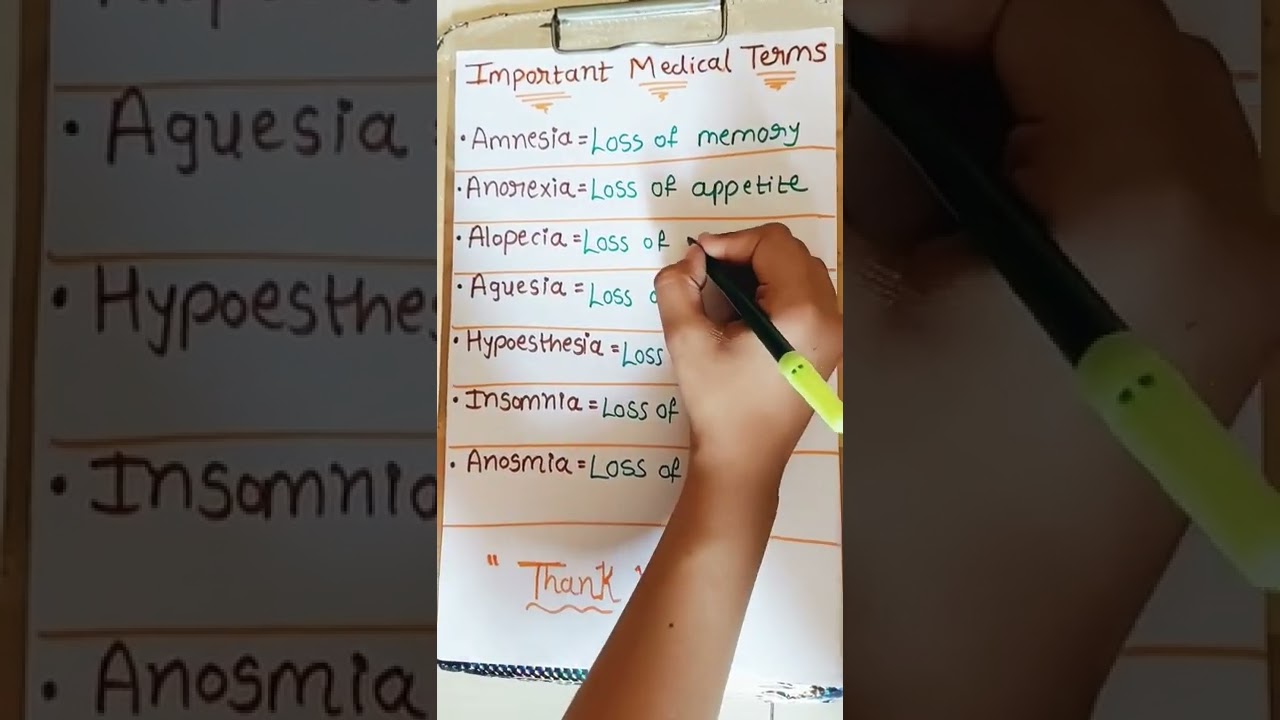 Important Medical Terms
• Amnesia = Loss of memory
• Anorexia = Loss of appetite
• Alopecia = Loss of
• Aguesia = Loss
• Hypoesthesia = Loss
• Insomnia = Loss of
• Anosmia = Loss of
" Thank
• Aguesia
• Hypoesthe
• Insomnia
• Anosmia